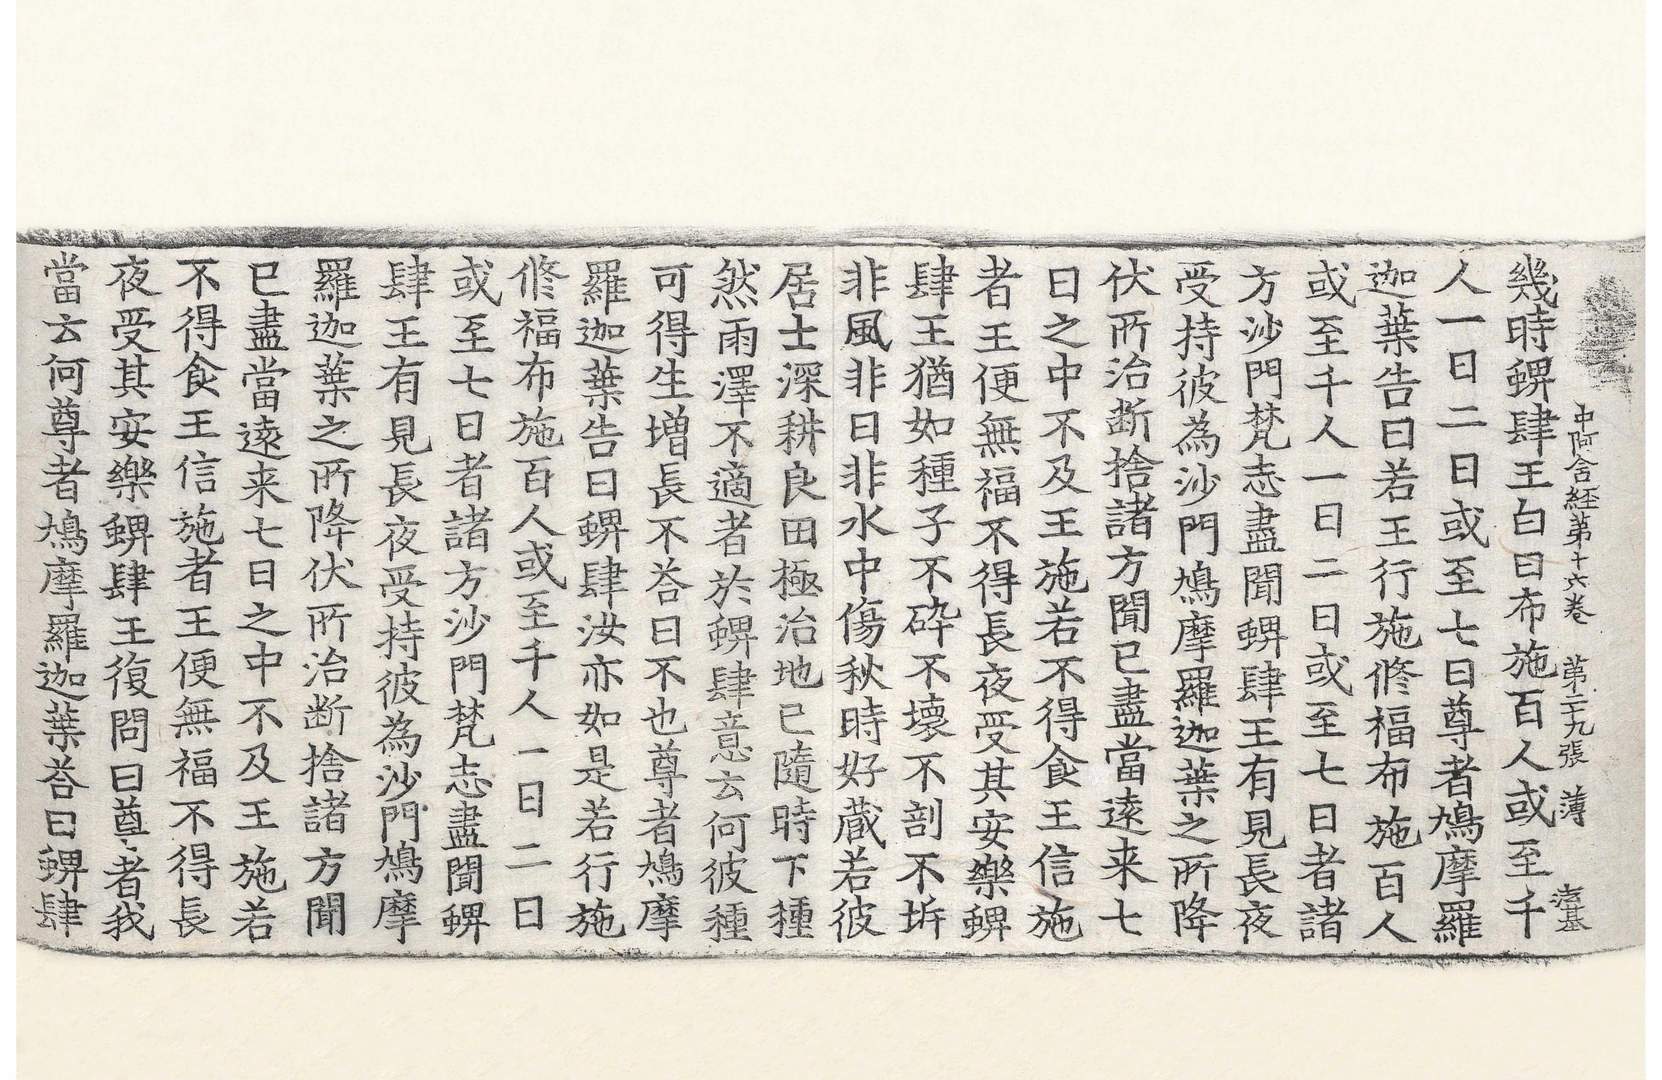 中阿含経第十六卷 第二十九張 薄
幾時蜱肆王白曰布施百人或至千
人一日二日或至七日尊者鳩摩羅
迦葉告曰若王行施修福布施百人
或至千人一日二日或至七日者諸
方沙門梵志盡聞蜱肆王有見長夜
受持彼為沙門鳩摩羅迦葉之所降
伏所治断捨諸方聞已盡當遠来七
日之中不及王施若不得食王信施
者王便無福不得長夜受其安樂蜱
肆王猶如種子不碎不壞不剖不坼
非風非日非水中傷秋時好蔵若彼
居士深耕良田極治地已隨時下種
然雨澤不適者於蜱肆意云何彼種
可得生增長不荅曰不也尊者鳩摩
羅迦葉告曰蜱肆汝亦如是若行施
修福布施百人或至千人一日二日
或至七日者諸方沙門梵志盡聞蜱
肆王有見長夜受持彼為沙門鳩摩
羅迦葉之所降伏所治断捨諸方聞
已盡當遠来七日之中不及王施若
不得食王信施者王便無福不得長
夜受其安樂蜱肆王復問曰尊者我
當云何尊者鳩摩羅迦葉荅曰蜱肆